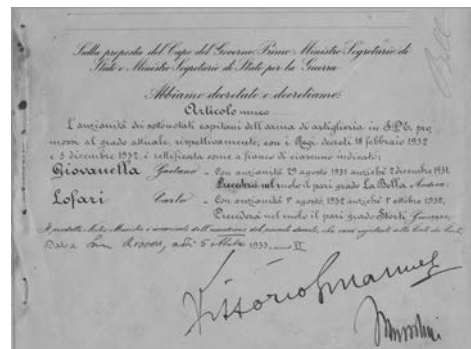 Sulla proposta del Capo del Governo Primo Ministro Segretario di
Stato e Ministro Segretario di Stato per la Guerra
Abbiamo decretato e decretiamo:
Articolo unico
L'anzianità dei sottonotati capitani dell'arma di artiglieria in S.P.E. pro
mossi al grado attuale, rispettivamente, con i Regi decreti 18 febbraio 1932
e 5 dicembre 1932, è rettificata come a fianco di ciascuno indicato:
Giovanella Gaetano - Con anzianità 29 agosto 1931 anziché 2 dicembre 1931.
Precederà nel ruolo il pari grado La Bella Andrea.
Lofari Carlo - Con anzianità 1° agosto 1932 anziché 1° ottobre 1932.
Precederà nel ruolo il pari grado Storti Giuseppe.
Il predetto Nostro Ministro è incaricato dell'esecuzione del presente decreto, che sarà registrato alla Corte dei Conti.
Dato a San Rossore, addì 5 ottobre 1933
Vittorio Emanuele
Mussolini